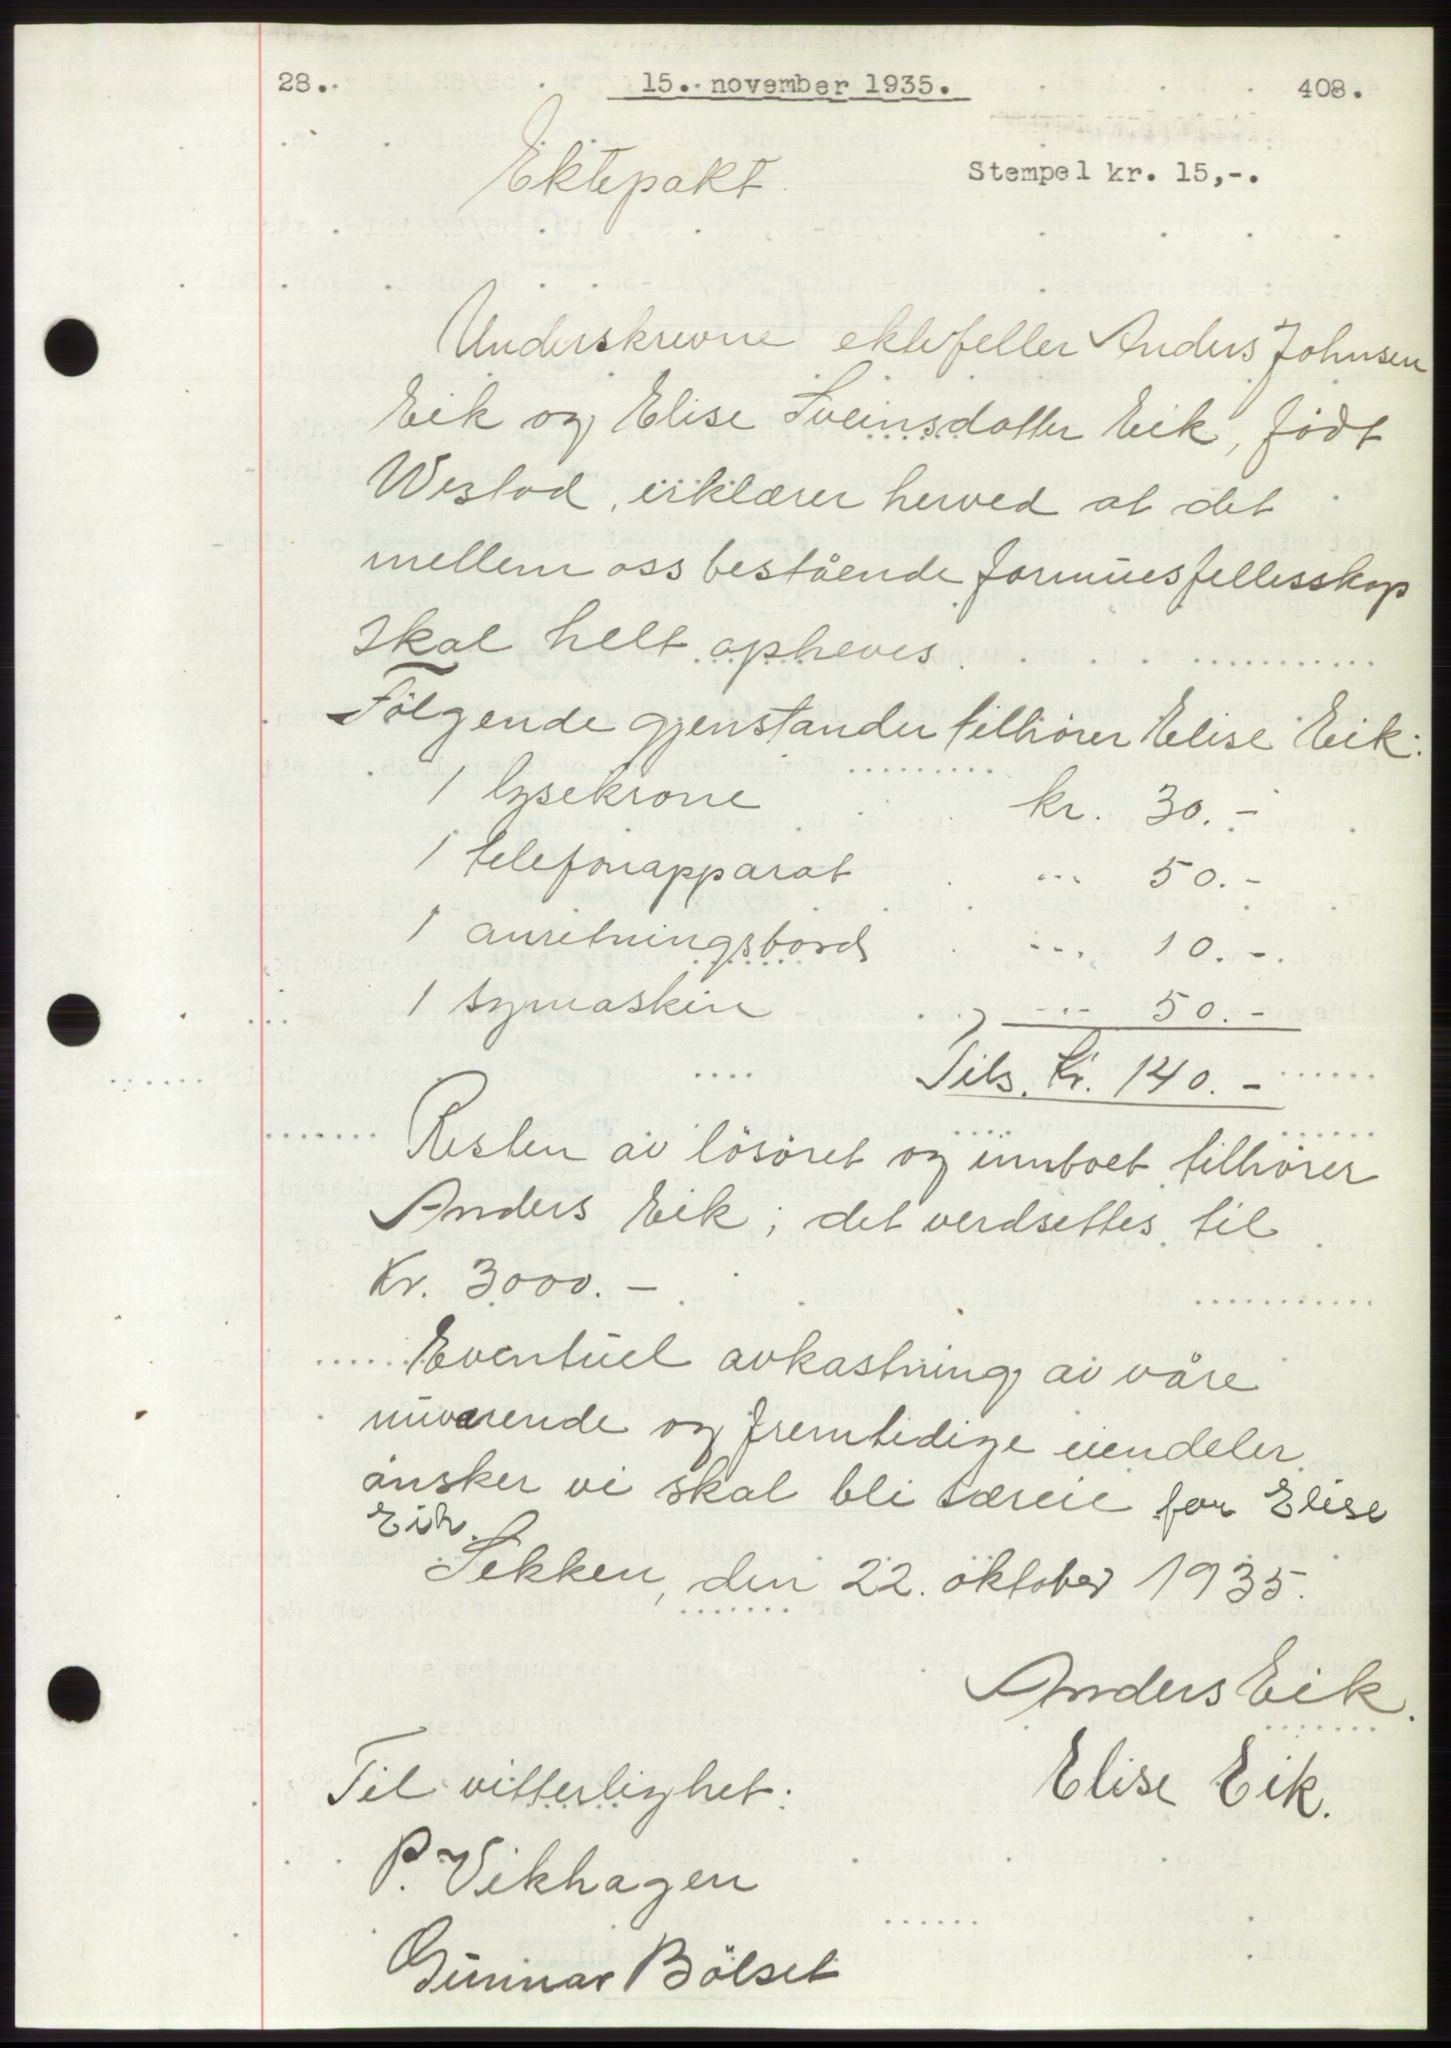 28. 15. november 1935. 408.
Ektepakt
Stempel kr. 15,-.
Underskrevne ektefeller Anders Johnsen
Eik og Elise Sveinsdatter Eik, født
Westad, erklærer herved at det
mellem oss bestående formuesfellesskap
skal helt opheves.
Følgende gjenstander tilhører Elise Eik:
1 lysekrone kr. 30.-
1 telefonapparat " 50.-
1 anretningsbord " 10.-.
1 symaskin " 50.-
Tils. Kr. 140.-
Resten av løsøret og innboet tilhører
Anders Eik; det verdsettes til
Kr. 3000.-
Eventuel avkastning av våre
nuværende og fremtidige eiendeler
ønsker vi skal bli særeie for Elise
Eik.
Sekken, den 22. oktober 1935.
Anders Eik.
Elise Eik.
Til vitterlighet:
P. Vikhagen
Gunnar Bölset